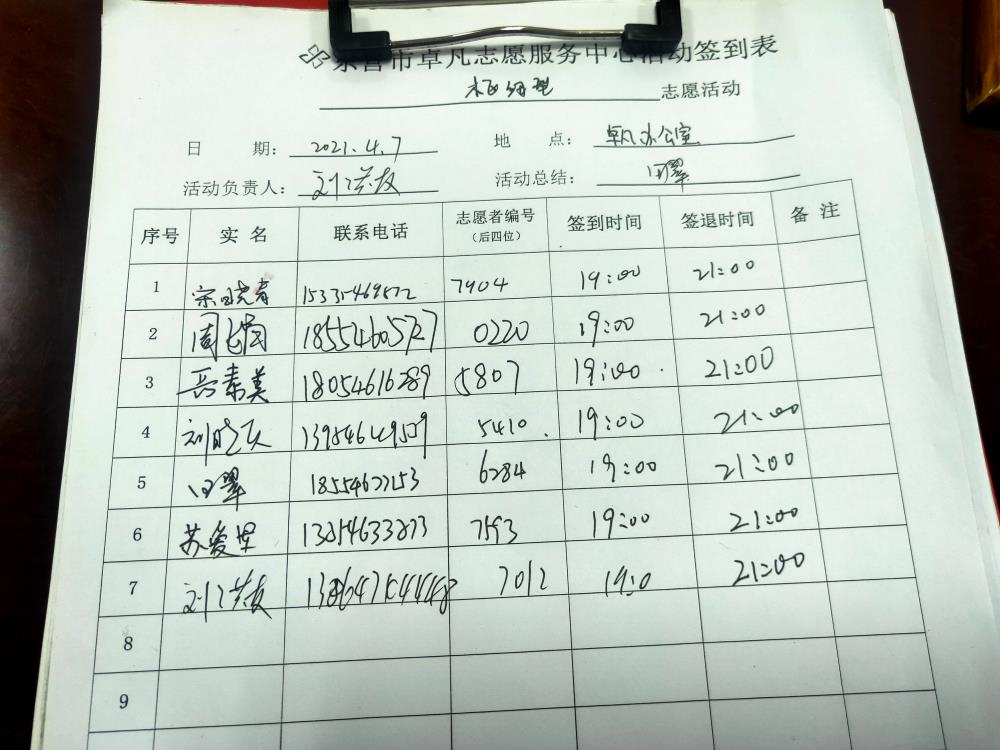 东营市卓凡志愿服务中心活动签到表
志愿活动
日 期: 2021.4.7 地 点: 卓凡办公室
活动负责人: 刘洪友 活动总结: 田翠
序号 实 名 联系电话 志愿者编号 (后四位) 签到时间 签退时间 备 注
1 宗晓青 7904 19:00 21:00
2 0220 19:00 21:00
3 岳素美 18054616289 5807 19:00 21:00
4 刘晓庆 5410 19:00 21:00
5 田翠 18554622153 6284 19:00 21:00
6 苏爱 7593 19:00 21:00
7 刘洪友 7012 19:0 21:00
8
9